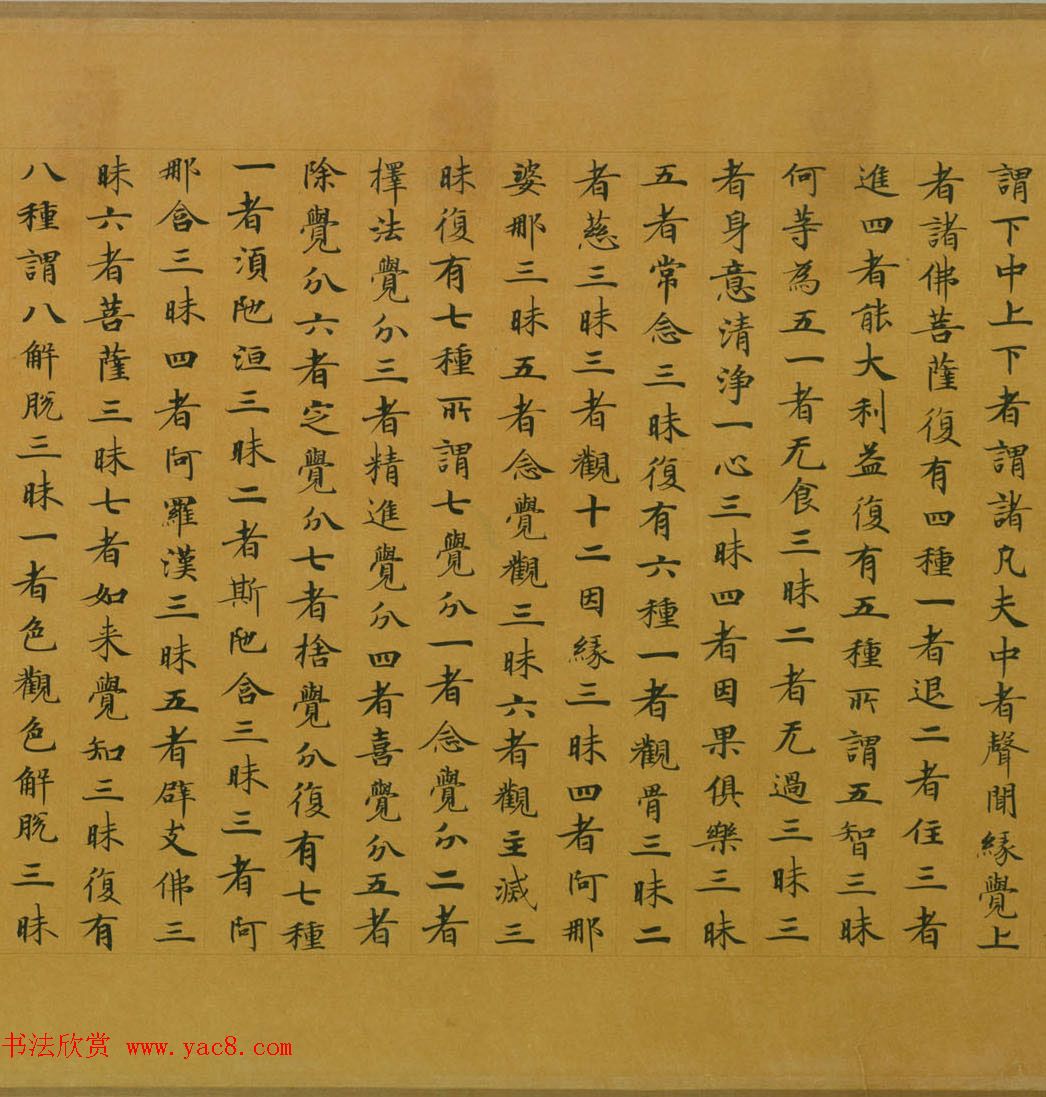 謂下中上下者謂諸凡夫中者聲聞緣覺上
者諸佛菩薩復有四種一者退二者住三者
進四者能大利益復有五種所謂五智三昧
何等為五一者无食三昧二者无過三昧三
者身意清淨一心三昧四者因果俱樂三昧
五者常念三昧復有六種一者觀骨三昧二
者慈三昧三者觀十二因緣三昧四者阿那
婆那三昧五者念覺觀三昧六者觀主滅三
昧復有七種所謂七覺分一者念覺分二者
擇法覺分三者精進覺分四者喜覺分五者
除覺分六者定覺分七者捨覺分復有七種
一者湏陁洹三昧二者斯陁含三昧三者阿
那含三昧四者阿羅漢三昧五者辟支佛三
昧六者菩薩三昧七者如来覺知三昧復有
八種謂八解脫三昧一者色觀色解脫三昧
书法欣赏 www.yac8.com